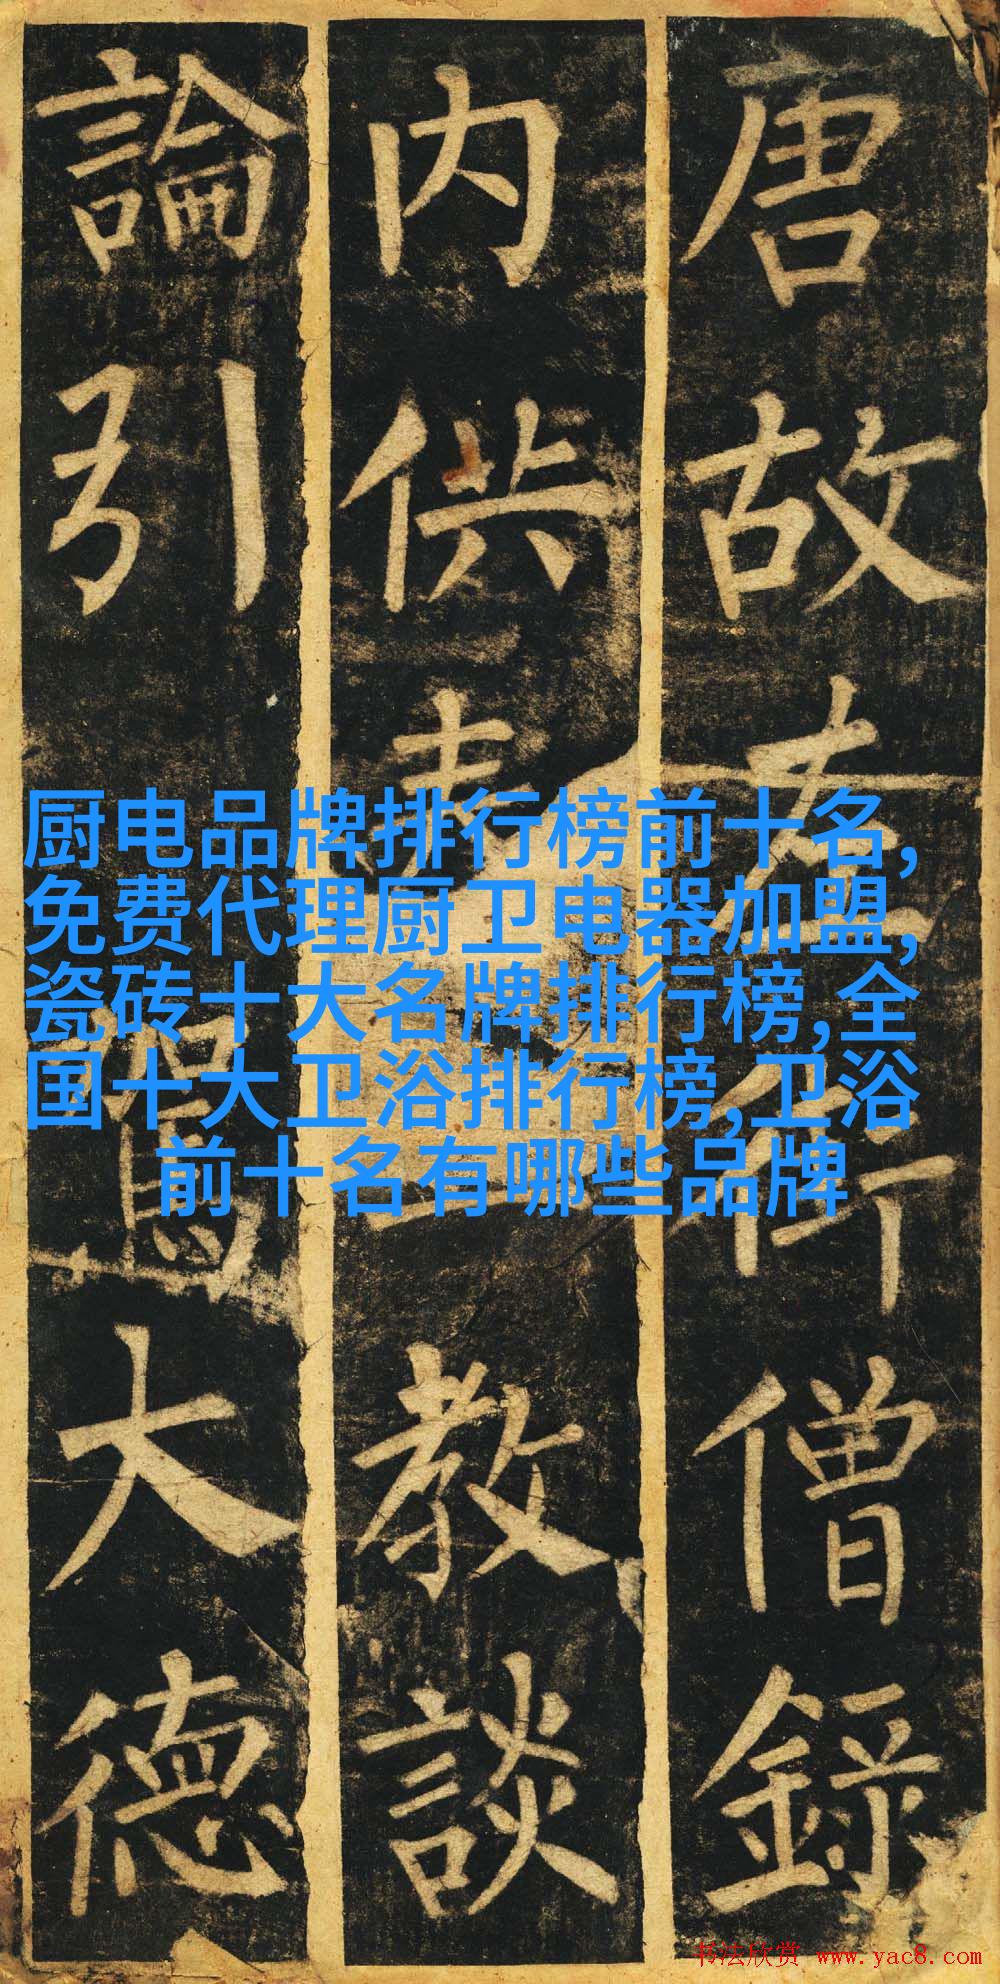 唐故左街僧錄
内供奉三教談
論引駕大德
厨电品牌排行榜前十名,
免费代理厨卫电器加盟,
瓷砖十大名牌排行榜,全
国十大卫浴排行榜,卫浴
前十名有哪些品牌
书法欣赏 www.yac8.com